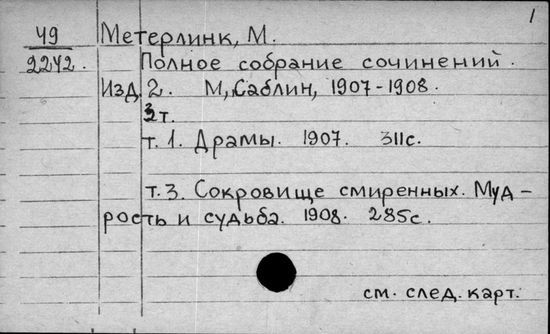 1
49 Метерлинк, М.
2242. Полное собрание сочинений.
Изд. 2. М, Саблин, 1907-1908.
т.
т. 1. Драмы. 1907. 311с.
т. 3. Сокровище смиренных. Муд-
рость и судьба. 1908. 285с.
см. след. карт.